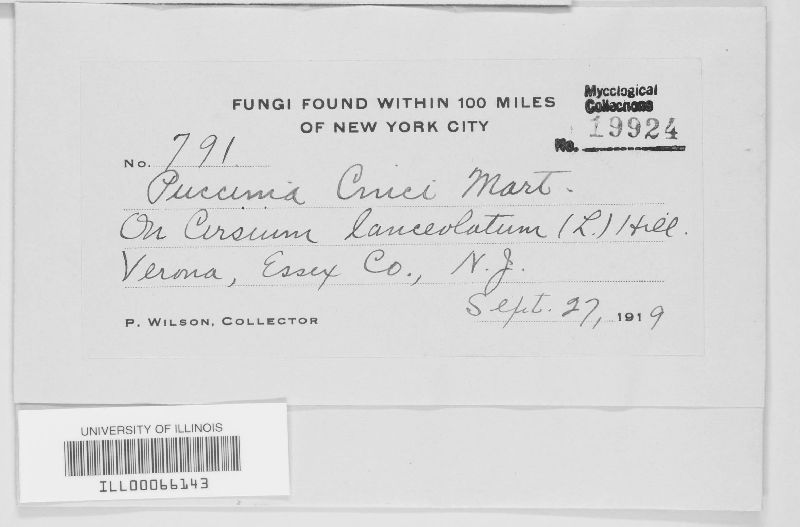 FUNGI FOUND WITHIN 100 MILES
OF NEW YORK CITY
Mycological
Collections
No. 19924
No. 791
Puccinia Cnici Mart.
On Cirsium lanceolatum (L.) Hill.
Verona, Essex Co., N.J.
Sept. 27, 1919
P. WILSON, COLLECTOR
UNIVERSITY OF ILLINOIS
ILL00066143